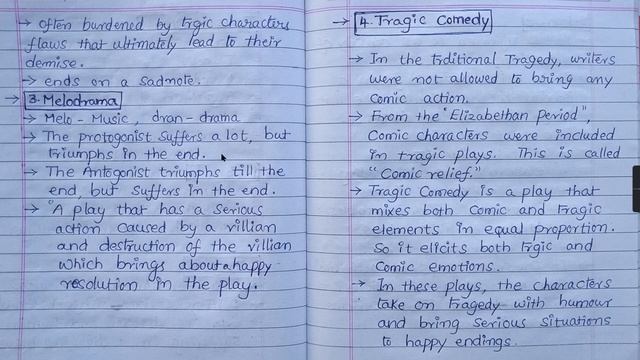 → Often burdened by trgic characters
flaws that ultimately lead to their
demise.
→ ends on a sadnote.
→ 3. Melodrama
→ Melo - Music, dran - drama
→ The protogonist suffers a lot, but
triumphs in the end.
→ The Antogonist triumphs till the
end, but suffers in the end.
→ "A play that has a serious
action caused by a villian
and destruction of the villian
which brings about a happy
resolution in the play.
→ 4. Tragic Comedy
→ In the trditional Tragedy, writers
were not allowed to bring any
Comic action.
→ From the "Elizabethan Period",
Comic characters were included
in tragic plays. This is called
"Comic relief."
→ Tragic Comedy is a play that
mixes both Comic and tragic
elements in equal proportion.
So it elicits both trgic and
Comic emotions.
→ In these plays, the characters
take on tragedy with humour
and bring serious situations
to happy endings.